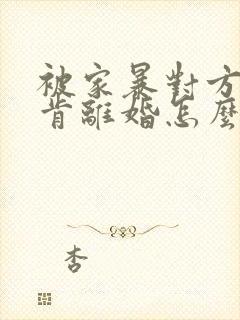 被家暴對方
肯離婚怎麼
杏